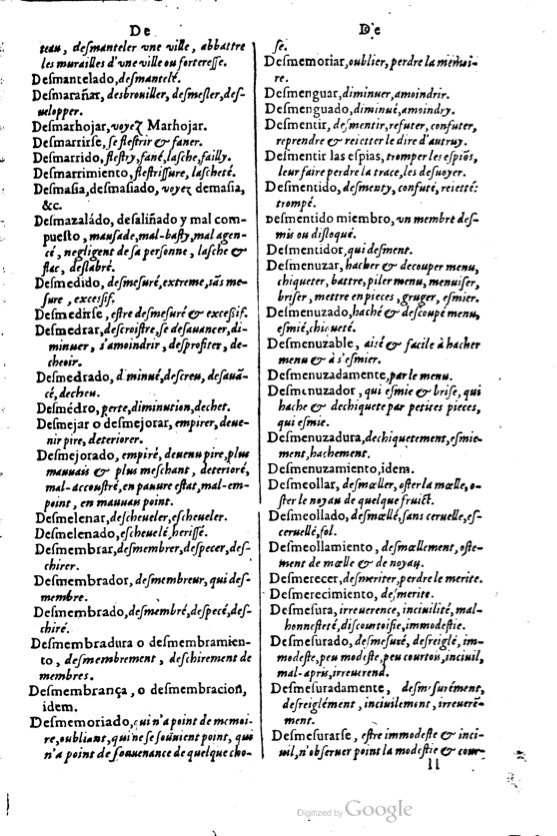 De
teau, desmanteler vne ville, abbattre
les murailles d'vne ville ou forteresse.
Desmantelado, desmantelé.
Desmarañar, desbrouiller, desmesler, des-
uelopper.
Desmarhojar, voyez Marhojar.
Desmarrirse, se flestrir & faner.
Desmarrido, flestry, fané, lasche, failly.
Desmarrimiento, flestrissure, lascheté.
Desmasia, desmasiado, voyez demasia,
&c.
Desmazaládo, desaliñado y mal com-
puesto, mausade, mal-basty, mal agen-
cé, negligent de sa personne, lasche &
flac, deslabré.
Desmedido, desmesuré, extreme, sãs me-
sure, excessif.
Desmedirse, estre desmesuré & excessif.
Desmedrar, descroistre, se desauancer, di-
minuer, s'amoindrir, desprofiter, de-
cheoir.
Desmedrado, diminué, descreu, desauã-
cé, decheu.
Desmédro, perte, diminution, dechet.
Desmejar o desmejorar, empirer, deue-
nir pire, deteriorer.
Desmejorado, empiré, deuenu pire, plus
mauuais & plus meschant, deterioré,
mal-accoustré, en pauure estat, mal-em-
point, en mauuau point.
Desmelenar, descheueler, escheueler.
Desmelenado, escheuelé, herissé.
Desmembrar, desmembrer, despecer, des-
chirer.
Desmembrador, desmembreur, qui des-
membre.
Desmembrado, desmembré, despecé, des-
chiré.
Desmembradura o desmembramien-
to, desmembrement, deschirement de
membres.
Desmembrança, o desmembracion,
idem.
Desmemoriado, qui n'a point de memoi-
re, oublians, qui ne se souuient point, qui
n'a point de souuenance de quelque cho-
De
se.
Desmemoriar, oublier, perdre la memoi-
re.
Desmenguar, diminuer, amoindrir.
Desmenguado, diminué, amoindry.
Desmentir, desmentir, refuter, confuter,
reprendre & reietter le dire d'autruy.
Desmentir las espias, tromper les espiõs,
leur faire perdre la trace, les desuoyer.
Desmentido, desmenty, confuté, reietté:
trompé.
Desmentido miembro, vn membre des-
mis ou disloqué.
Desmentidor, qui desment.
Desmenuzar, hacher & decouper menu,
chiqueter, battre, piler menu, menuiser,
briser, mettre en pieces, gruger, esmier.
Desmenuzado, haché & descoupé menu,
esmié, chiqueté.
Desmenuzable, aisé & facile à hacher
menu & à s'esmier.
Desmenuzadamente, par le menu.
Desmenuzador, qui esmie & brise, qui
hache & dechiquete par petites pieces,
qui esmie.
Desmenuzadura, dechiquetement, esmie-
ment, hachement.
Desmenuzamiento, idem.
Desmeollar, desmœller, oster la mœlle, o-
ster le noyau de quelque fruict.
Desmeollado, desmœllé, sans ceruelle, es-
ceruellé, fol.
Desmeollamiento, desmœllement, oste-
ment de mœlle & de noyau.
Desmerecer, desmeriter, perdre le merite.
Desmerecimiento, desmerite.
Desmesura, irreuerence, inciuilité, mal-
honnesteté, discourtoisie, immodestie.
Desmesurado, desmesuré, desreiglé, im-
modeste, peu modeste, peu courtois, inciuil,
mal-apris, irreuerend.
Desmesuradamente, desmesurément,
desreiglément, inciuilement, irreuerẽ-
ment.
Desmesurarse, estre immodeste & inci-
uil, n'obseruer point la modestie & cour-
ll
Digitized by Google